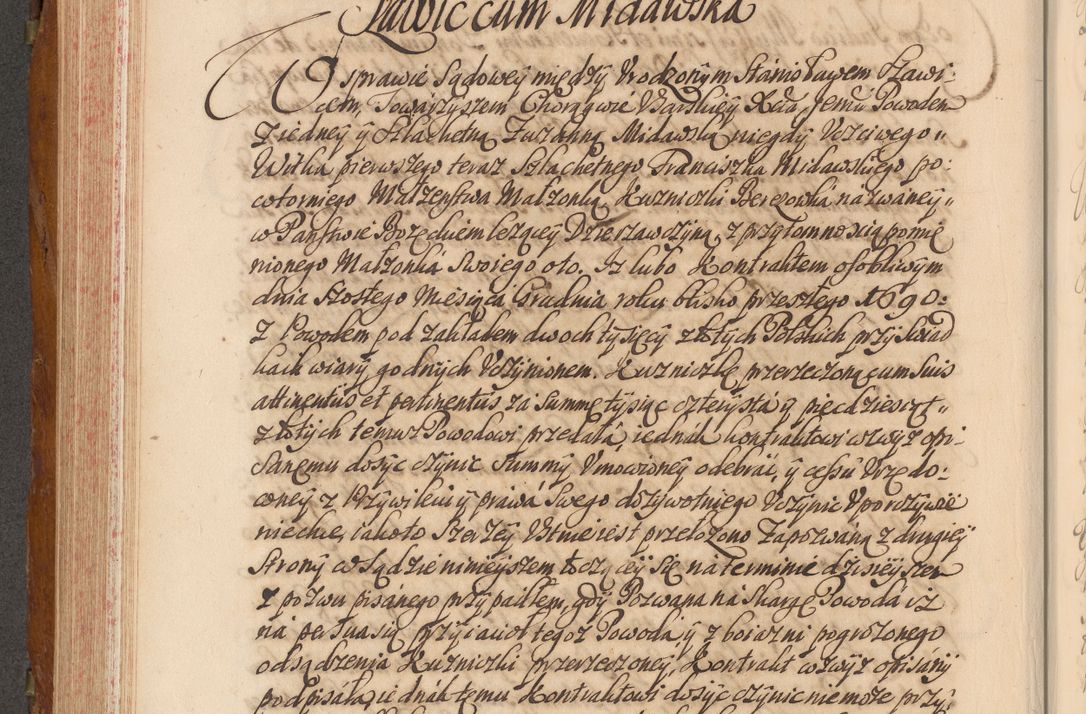 Ławic cum Midawska
W sprawie Sądowey między Urodzonym Stanisławem Ławi:
cem, Towarzyszem Chorągwie Ususarskiey Powodem
z iedney y Szlachetną Zuzanną Midawską niegdy Uczciwego
Wilka pierwszego teraz Szlachetnego Franciszka Midawskiego po:
wtornego Małzęstwa Małzonką Kuzniczki Berezowka nazwaney
w Państwie Boręckiem lezącey Dzierzawczyną, z przytomnoscią pomie
nionego Małzonka Swoiego oto. Iz lubo Kontraktem osobliwym
dnia szostego Miesiąca Grudnia roku blisko przeszłego 1690:
z Powodem pod zakładem dwoch tysięcy złotych Polskich przy Swiad
kach wiary godnych Uczynionem. Kuzniczkę przerzeczoną cum suis
attinentiis et pertinentiis za Summę tysiąc czterysta y pięcdziesiąt
złotych temusz Powodowi przedała, iednak kontraktowi wzwysz opi:
sanemu dosyc czynic Summy Umowioney odebrac, y cessii Urzędo:
wney z Przywileiu y prawa Swego dozywotniego Uczynic Uporczywie
niechce, iakoto Szerzey Ustnie iest przełozono Zapozwaną z drugiey
Strony w Sądzie ninieyszem toczącey się na terminie dzisieyszem
z pozwu pisanego przypadłem, gdy Pozwana na Skargę Powoda iz
na perswasią przyiacioł tegoz Powoda y z boiazni pogrozonego
odsądzenia Kuzniczki przerzeczoney, Kontrakt wzwysz opisany
podpisała, iednak temu Kontraktowi dosyc czynic niemoze przy: